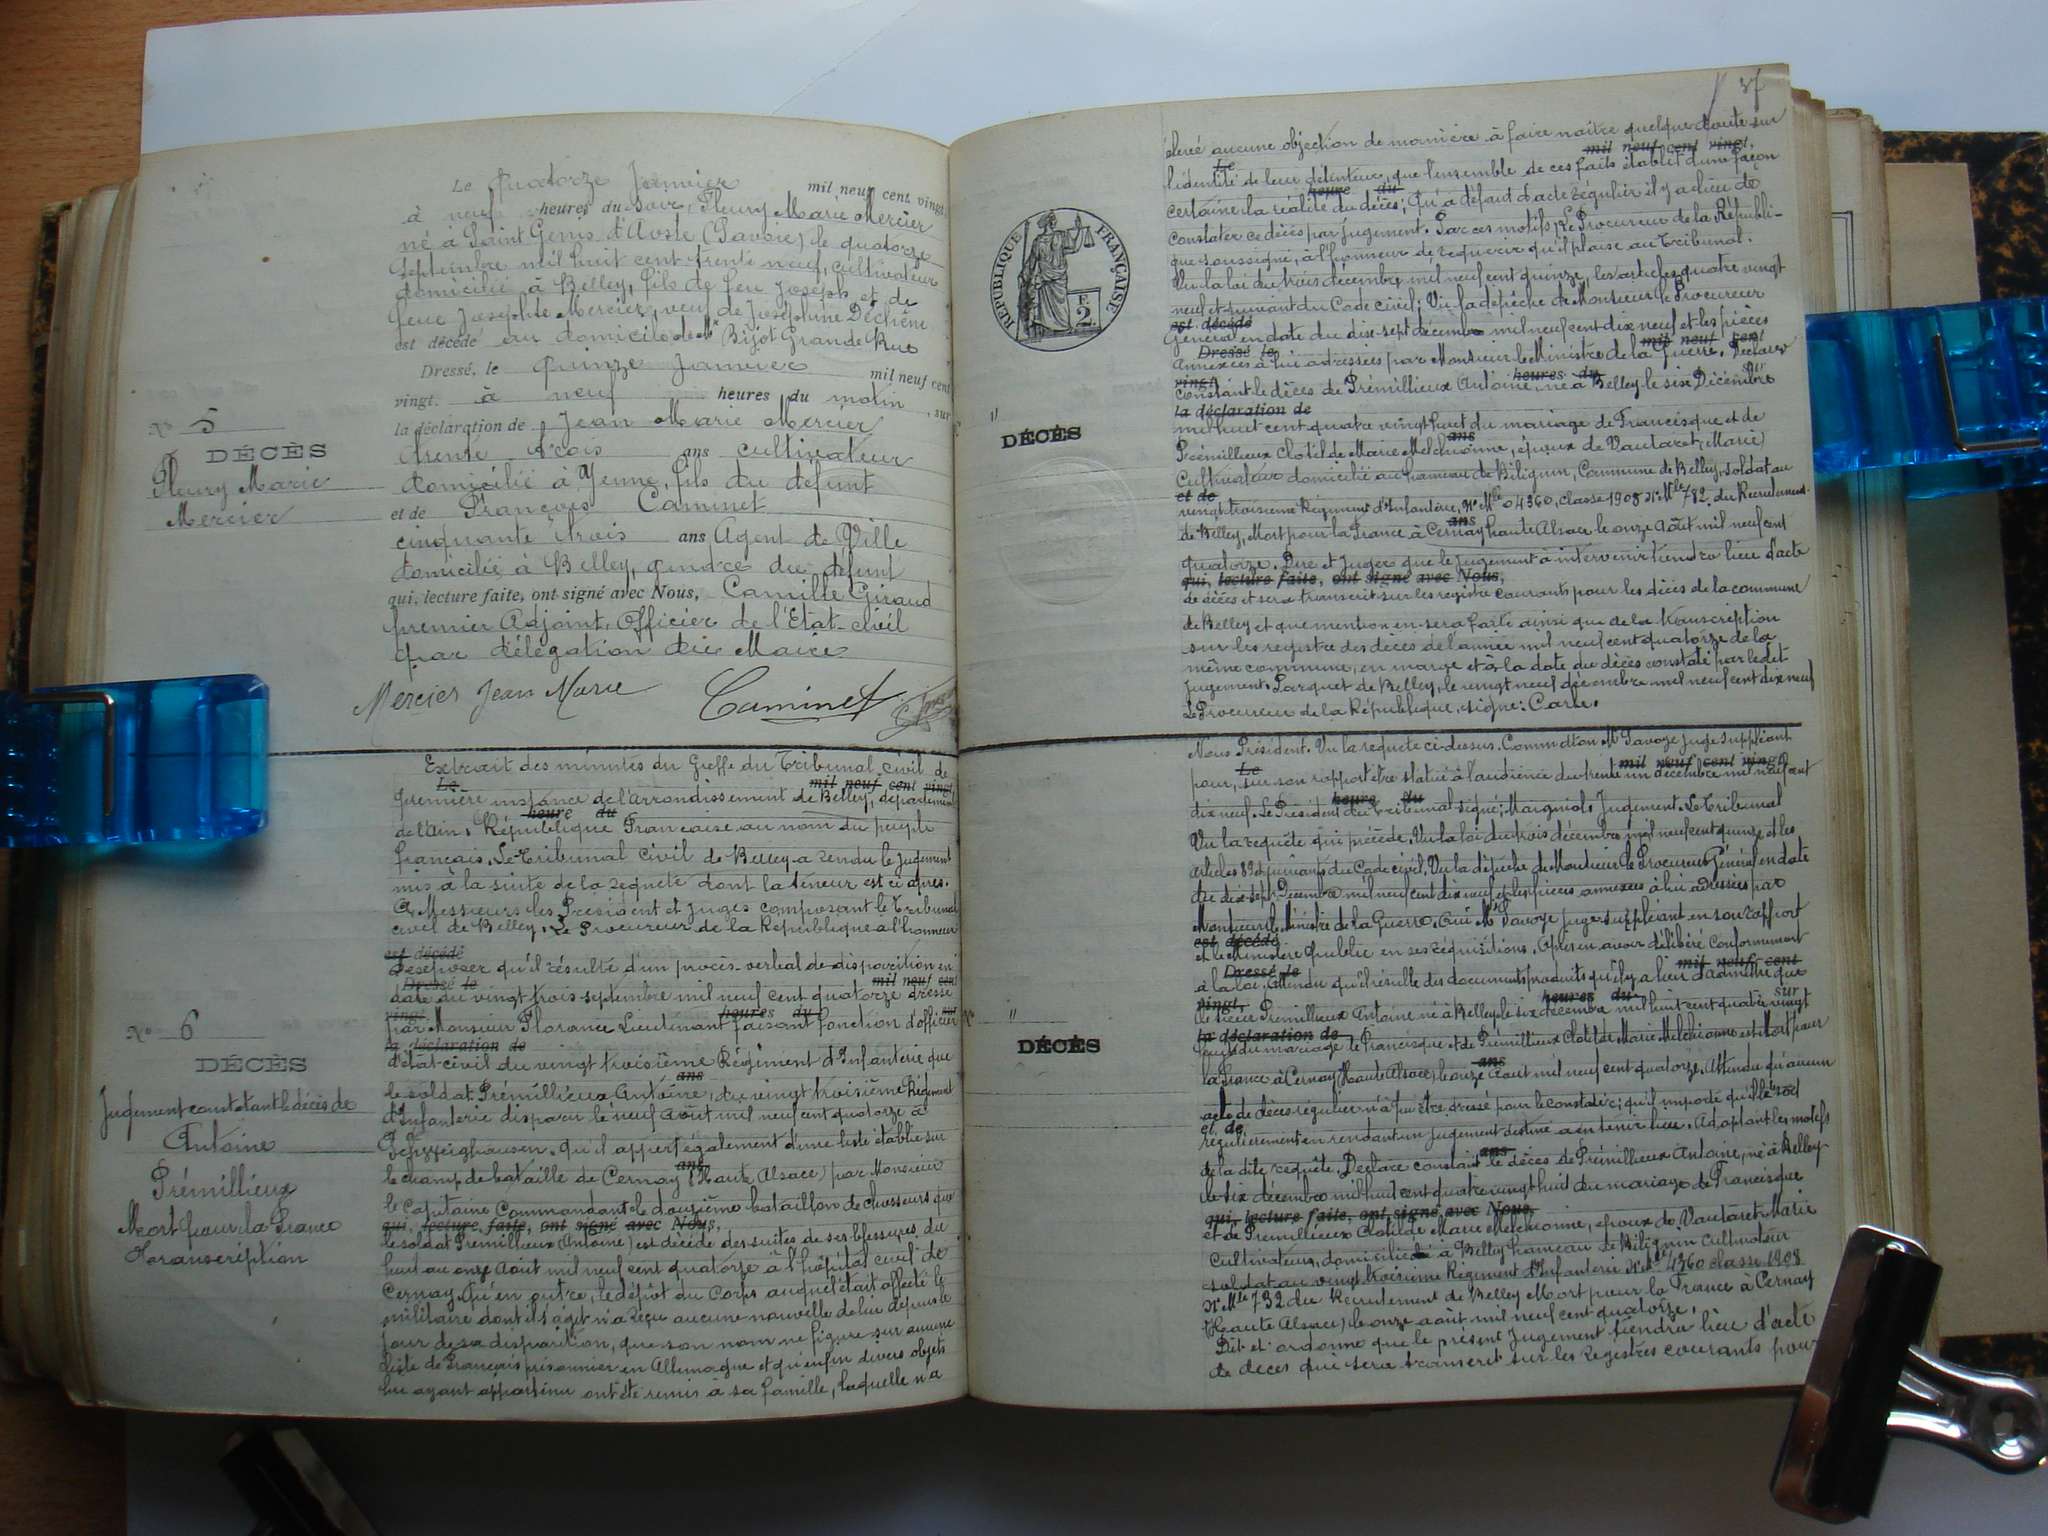 Le Quatorze Janvier mil neuf cent vingt,
à neuf heures du soir, Fleury Marie Mercier
né à Saint Genis d'Aoste (Savoie) le quatorze
Septembre mil huit cent trente neuf, cultivateur
domicilié à Belley, fils de feu Joseph et de
feue Josephte Mercier, veuf de Joséphine Déchêne
est décédé au domicile de Mr Bijot Grande Rue
Dressé, le Quinze Janvier mil neuf cent
vingt. à neuf heures du matin, sur
la déclaration de Jean Marie Mercier
trente trois ans cultivateur
domicilié à Yenne, fils du défunt
et de François Caminet
cinquante trois ans Agent de Ville
domicilié à Belley, gendre du défunt
qui, lecture faite, ont signé avec Nous, Camille Giraud
premier Adjoint, Officier de l'Etat-civil
par délégation du Maire
Mercier Jean Marie Caminet
No 5
DÉCÈS
Fleury Marie
Mercier
Extrait des minutes du Greffe du Tribunal civil de
Le mil neuf cent vingt,
première instance de l'arrondissement de Belley, département
heure du
de l'Ain. République Française au nom du peuple
français. Le Tribunal civil de Belley a rendu le jugement
mis à la suite de la requête dont la teneur est ci après.
A Messieurs les Président et Juges composant le Tribunal
civil de Belley. Le Procureur de la République a l'honneur
est décédé
d'exposer qu'il résulte d'un procès-verbal de disparition en
Dressé le mil neuf cent
date du vingt trois septembre mil neuf cent quatorze dressé
vingt. heures du sur
par Monsieur Florance Lieutenant faisant fonction d'officier
la déclaration de
d'état-civil du vingt troisième Régiment d'Infanterie que
ans
le soldat Prémillieux Antoine, du vingt troisième Régiment
d'Infanterie disparu le neuf Août mil neuf cent quatorze à
et de
Qu'il appert également d'une liste établie sur
ans
le champ de bataille de Cernay (Haute Alsace) par Monsieur
le Capitaine Commandant le douzième bataillon de chasseurs que
qui, lecture faite, ont signé avec Nous,
le soldat Prémillieux (Antoine) est décédé des suites de ses blessures du
huit au onze Août mil neuf cent quatorze à l'hôpital civil de
Cernay. Qu'en outre, le dépôt du Corps auquel était affecté le
militaire dont il s'agit n'a reçu aucune nouvelle de lui depuis le
jour de sa disparition, que son nom ne figure sur aucune
liste de Français prisonnier en Allemagne et qu'enfin divers objets
lui ayant appartenu ont été remis à sa famille, laquelle n'a
No 6
DÉCÈS
Jugement constatant le décès de
Antoine
Prémillieux
Mort pour la France
Transcription
37
élevé aucune objection de manière à faire naître quelque doute sur
Le mil neuf cent vingt,
l'identité de leur détenteur, que l'ensemble de ces faits établit d'une façon
heure du
certaine la réalité du décès; Qu'à défaut d'acte régulier il y a lieu de
constater ce décès par jugement. Par ces motifs, Le Procureur de la Républi-
que soussigné, a l'honneur de requérir qu'il plaise au Tribunal.
Vu la loi du trois décembre mil neuf cent quinze, les articles quatre vingt
neuf et suivant du Code civil; Vu la dépêche de Monsieur le Procureur
est décédé
Général en date du dix-sept décembre mil neuf cent dix neuf et les pièces
Dressé le mil neuf cent
annexées à lui adressées par Monsieur le Ministre de la Guerre. Déclarer
vingt. heures du sur
constant le décès de Prémillieux Antoine, né à Belley le six Décembre
la déclaration de
mil huit cent quatre vingt huit du mariage de Francisque et de
ans
Prémillieux Clotilde Marie Melchionne, époux de Vautaret, Marie
Cultivateur domicilié au hameau de Bilignin, Commune de Belley, soldat au
et de
vingt troisième Régiment d'Infanterie, No Mle 04360, classe 1908 No Mle 782 du Recrutement
ans
de Belley, Mort pour la France à Cernay haute Alsace le onze Août mil neuf cent
quatorze. Dire et Juger que le jugement à intervenir tiendra lieu d'acte
qui, lecture faite, ont signé avec Nous,
de décès et sera transcrit sur les registre courants pour les décès de la commune
de Belley et que mention en sera faite ainsi que de la transcription
sur les registre des décès de l'année mil neuf cent quatorze de la
même commune, en marge et à la date du décès constaté par ledit
jugement. Parquet de Belley, le vingt neuf décembre mil neuf cent dix neuf
Le Procureur de la République, signé:
RÉPUBLIQUE FRANÇAISE
F.
2
"
DÉCÈS
Nous Président. Vu la requête ci-dessus. Commettons Mr Savoye juge suppléant
Le mil neuf cent vingt,
pour, sur son rapport être statué à l'audience du trente un décembre mil neuf cent
heure du
dix neuf. Le Président du Tribunal signé; Jugement. Le Tribunal
Vu la requête qui précède. Vu la loi du trois décembre mil neuf cent quinze et les
articles 89 et suivants du Code civil. Vu la dépêche de Monsieur le Procureur Général en date
du dix-sept Décembre mil neuf cent dix neuf et les pièces annexées à lui adressées par
Monsieur le Ministre de la Guerre. Ouï Mr Savoye juge suppléant en son rapport
est décédé
et le Ministère public en ses réquisitions. Après en avoir délibéré conformément
Dressé le mil neuf cent
à la loi, Attendu qu'il résulte des documents produits qu'il y a lieu d'admettre que
vingt, heures du sur
le sieur Prémillieux Antoine né à Belley le six décembre mil huit cent quatre vingt
la déclaration de
huit du mariage de Francisque et de Prémillieux Clotilde Marie Melchionne est Mort pour
ans
la France à Cernay (Haute Alsace), le onze août mil neuf cent quatorze. Attendu qu'aucun
acte de décès régulier n'a pu être dressé pour le constater; qu'il importe qu'il le soit
et de,
régulièrement en rendant un jugement destiné à en tenir lieu. Adoptant les motifs
ans
de la dite requête. Déclare constant le décès de Prémillieux Antoine, né à Belley
le six décembre mil huit cent quatre vingt huit du mariage de Francisque
qui, lecture faite, ont signé avec Nous,
et de Prémillieux Clotilde Marie Melchionne, époux de Vautaret Marie
Cultivateur, domicilié à Belley hameau de Bilignin cultivateur
soldat au vingt troisième Régiment d'Infanterie No Mle 4360 classe 1908
No Mle 732 du Recrutement de Belley Mort pour la France à Cernay
(Haute Alsace) le onze août mil neuf cent quatorze.
Dit et ordonne que le présent jugement tiendra lieu d'acte
de décès qui sera transcrit sur les Registres courants pour
No "
DÉCÈS